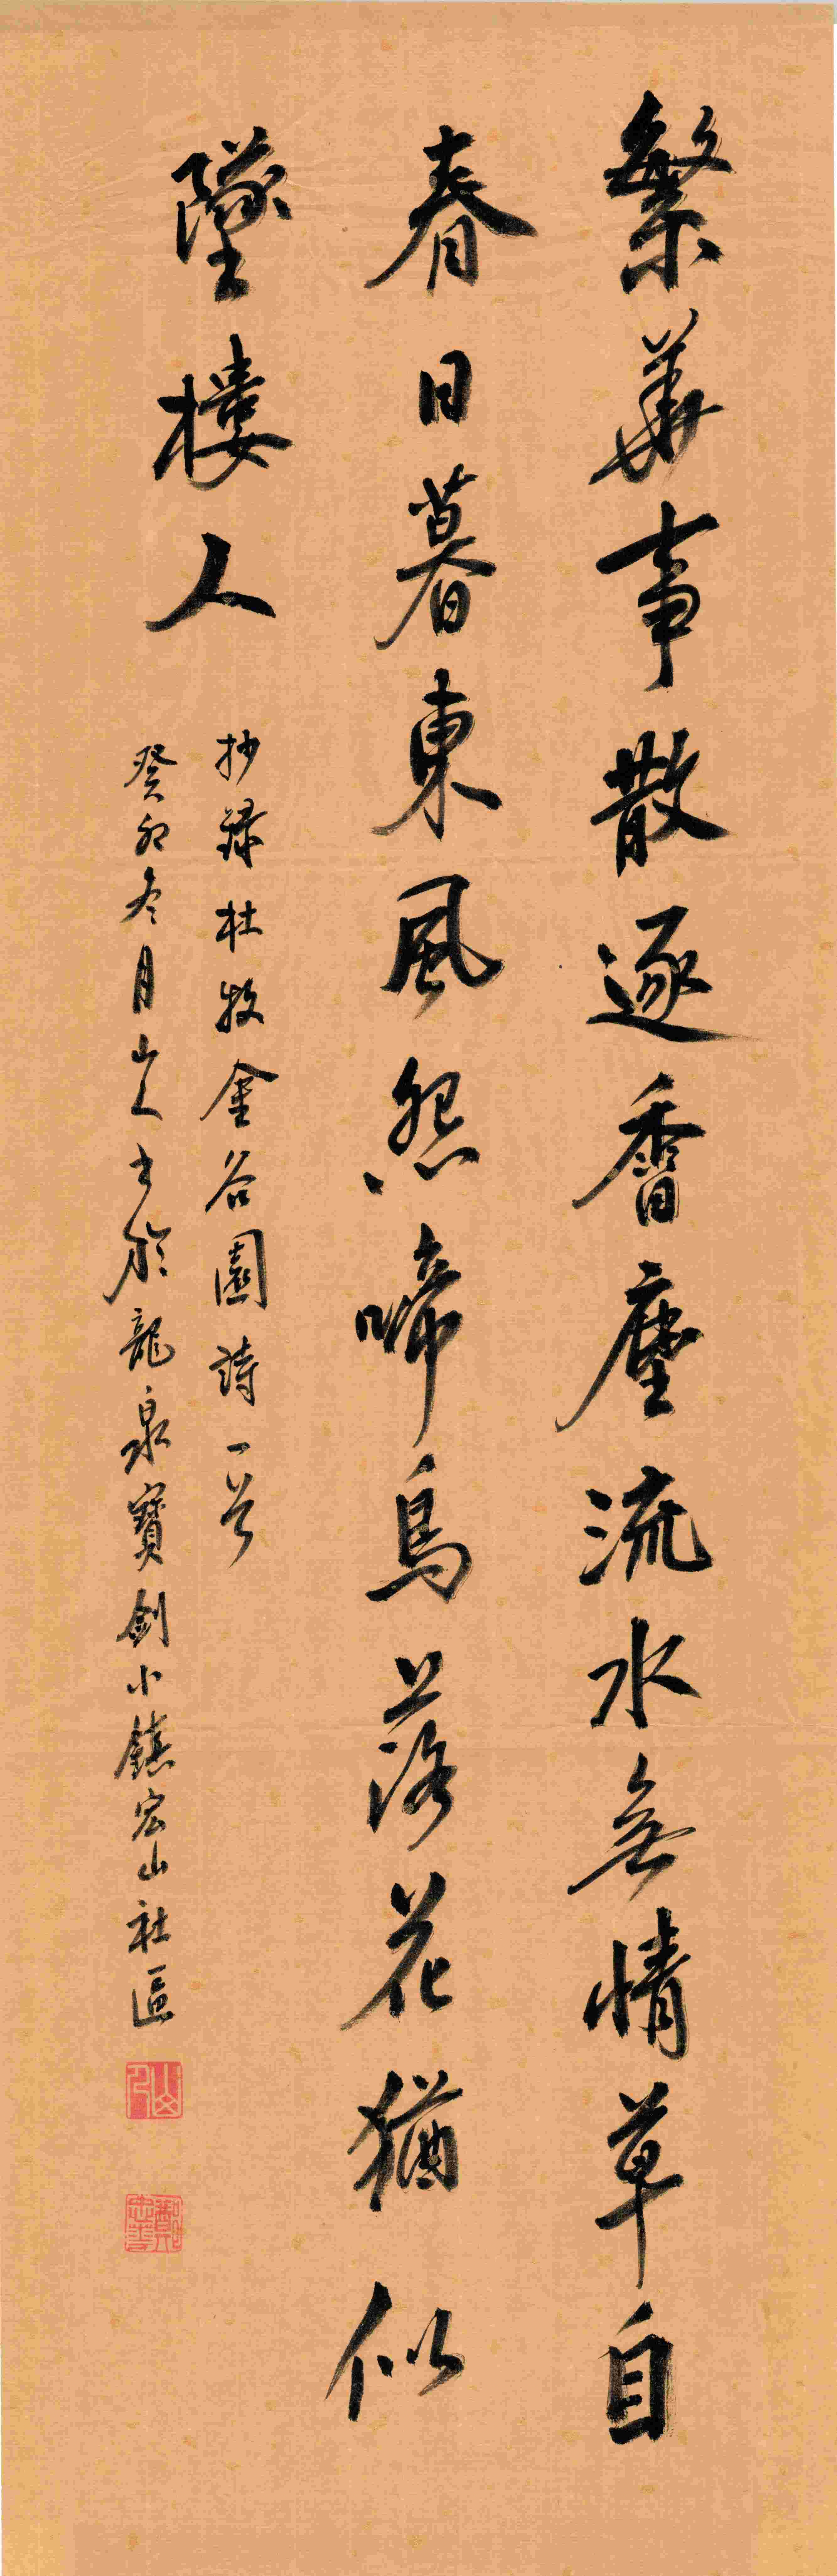 繁華事散逐香塵流水無情草自
春日暮東風怨啼鳥落花猶似
墜樓人
抄錄杜牧金谷園詩一首
癸卯冬月山人書於龍泉寶劍小鎮宏山社區